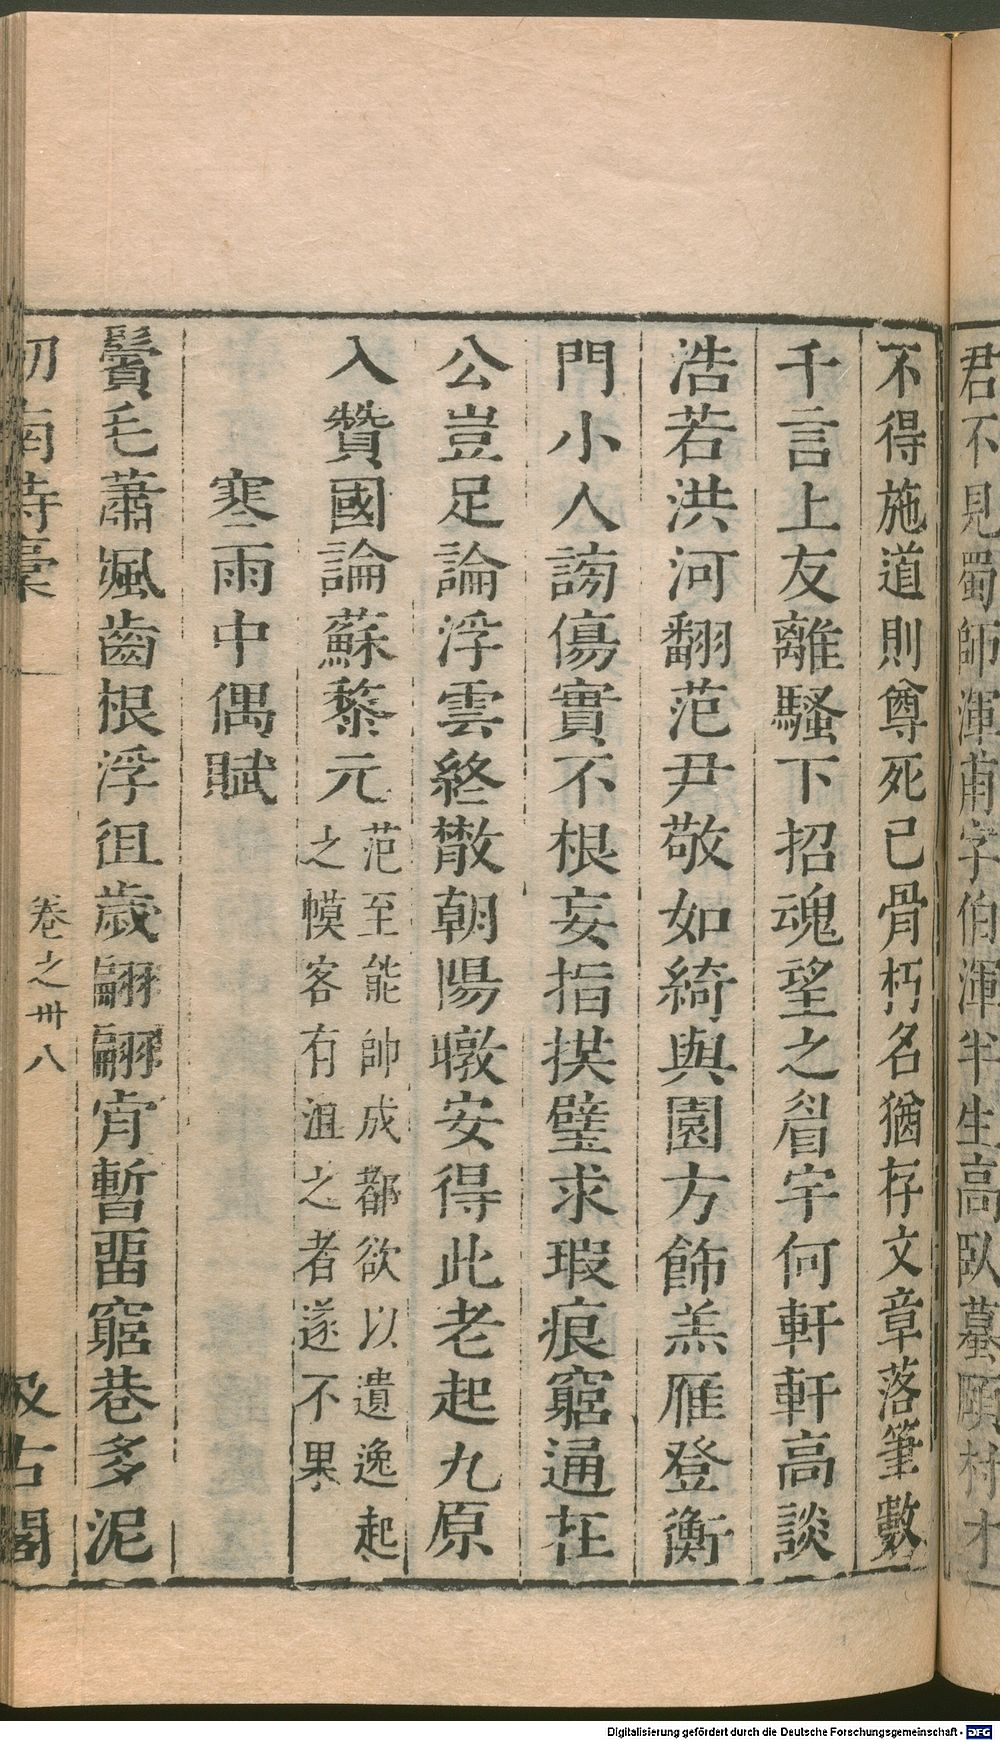 君不見蜀師渾甫字伯渾半生高臥蟇頤村才
不得施道則尊死已骨朽名猶存文章落筆數
千言上友離騷下招魂望之眉宇何軒軒高談
浩若洪河翻范尹敬如綺與園方飾羔雁登衡
門小人謗傷實不根妄指摸璧求瑕痕窮通在
公豈足論浮雲終散朝陽暾安得此老起九原
入贊國論蘇黎元范至能帥成都欲以遺逸起
之幙客有沮之者遂不果
寒雨中偶賦
鬢毛蕭颯齒根浮徂歲翩翩肯暫畱窮巷多泥
劒南詩稾
卷之卅八
汲古閣
Digitalisierung gefördert durch die Deutsche Forschungsgemeinschaft - DFG